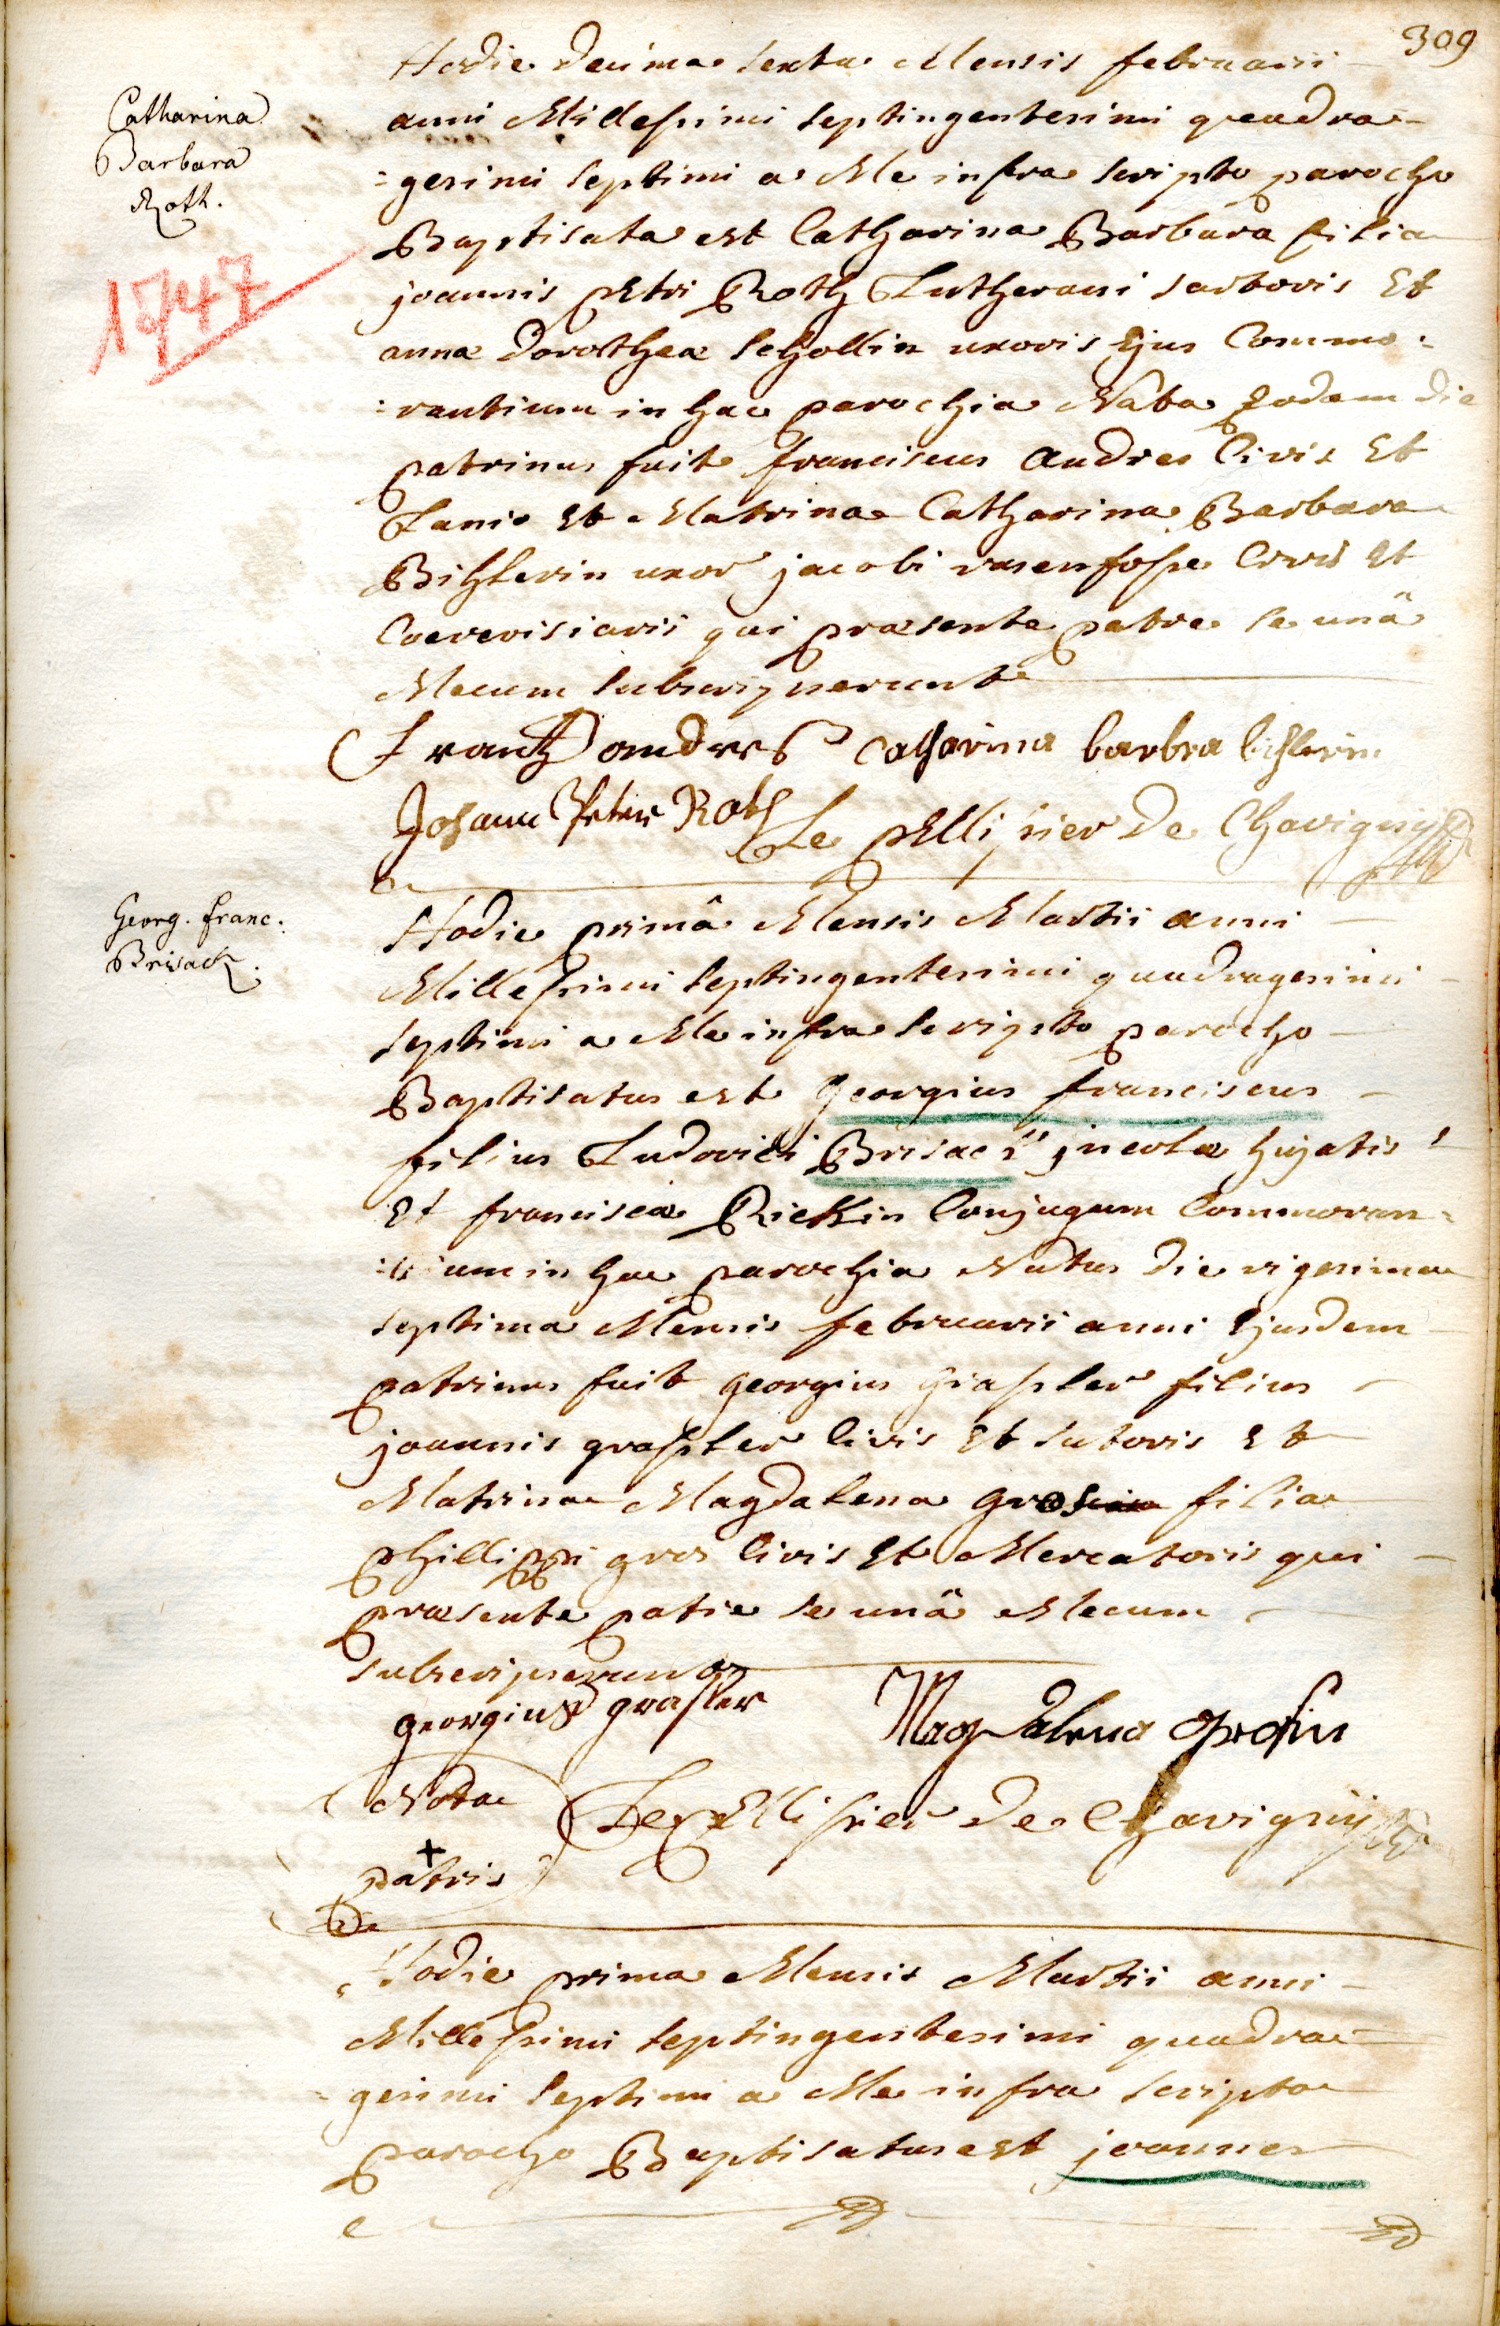 309
Catharina
Barbara
Roth.
1747
Hodie decima sexta Mensis februarii
anni Millesimi septingentesimi quadra-
=gesimi septimi a Me infra scripto parocho
Baptisata est Catharina Barbara filia
joannis pEtri Roth Lutherani sartoris Et
annæ dorotheæ schollin uxoris Ejus Commo=
=rantium in hac parochia Nata Eodem die
patrinus fuit franciscus andres Civis Et
Lanio Et Matrina Catharina Barbara
Bihlerin uxor jacobi Civis Et
Coerevisiarii qui præsente patre se unâ
Mecum subscripserunt
Frantz andres Catharina barbra bihlerin
Johann Peter Roth
Le pEllissier De Chavigny
Georg. Franc.
Brisack.
Hodie primâ Mensis Martii anni
Millesimi septingentesimi quadragesimi
septimi a Me infra scripto parocho
Baptisatus est georgius franciscus
filius Ludovici Brisack jncolæ hujatis
Et franciscæ Rickin Conjugum Commoran=
=tium in hac parochia Natus die vigesima
septima Mensis februarii anni Ejusdem
patrinus fuit georgius grassler filius
joannis grassler Civis Et sutoris Et
Matrina Magdalena grosin filia
phillippi gros Civis Et Mercatoris qui
præsente patre se unâ Mecum
subscripserunt
georgius grassler Magdalena Grosin
Nota
+
patris
Le pEllissier De Chavigny
Hodie prima Mensis Martii anni
Millesimi septingentesimi quadra-
=gesimi septimi a Me infra scripto
parocho Baptisatus est joannes